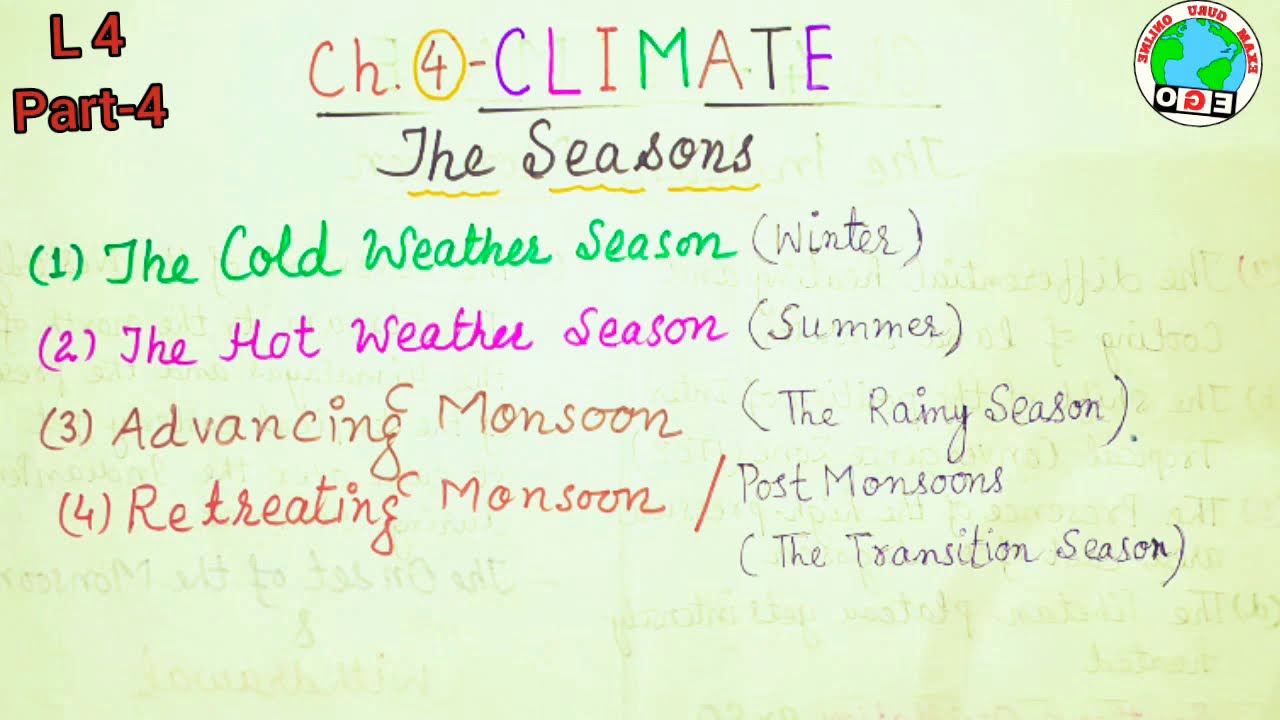 L 4
Part-4
Ch. 4 - CLIMATE
EXAM GURU ONLINE
EGO
The Seasons
(1) The Cold Weather Season (Winter)
(2) The Hot Weather Season (Summer)
(3) Advancing Monsoon (The Rainy Season).
(4) Retreating Monsoon / Post Monsoons
(The Transition Season)